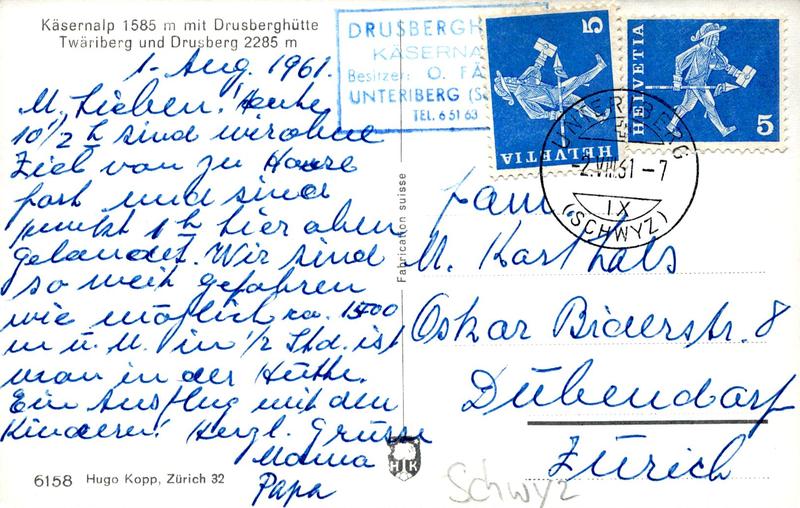 Käsernalp 1585 m mit Drusberghütte
Twäriberg und Drusberg 2285 m
1. Aug. 1961.
M. Lieben! Heute
10 1/2 h sind wir ohne
Ziel von zu Hause
fort und sind
punkt 1 h hier oben
gelandet. Wir sind
so weit gefahren
wie möglich ca. 1500
m ü. M. in 1/2 Std. ist
man in der Hütte.
Ein Ausflug mit den
Kinderen! Herzl. Grüsse
Mama
Papa
6158 Hugo Kopp, Zürich 32
DRUSBERGH
KÄSERNA
Besitzer: O. FÄ
UNTERIBERG (S
TEL. 6 51 63
5
HELVETIA
HELVETIA
5
UNTERIBERG
-2.VIII.61-7
IX
(SCHWYZ)
Fabrication suisse
HK
Fam.
M. Karthals
Oskar Biderstr. 8
Dübendorf
Zürich
Schwyz